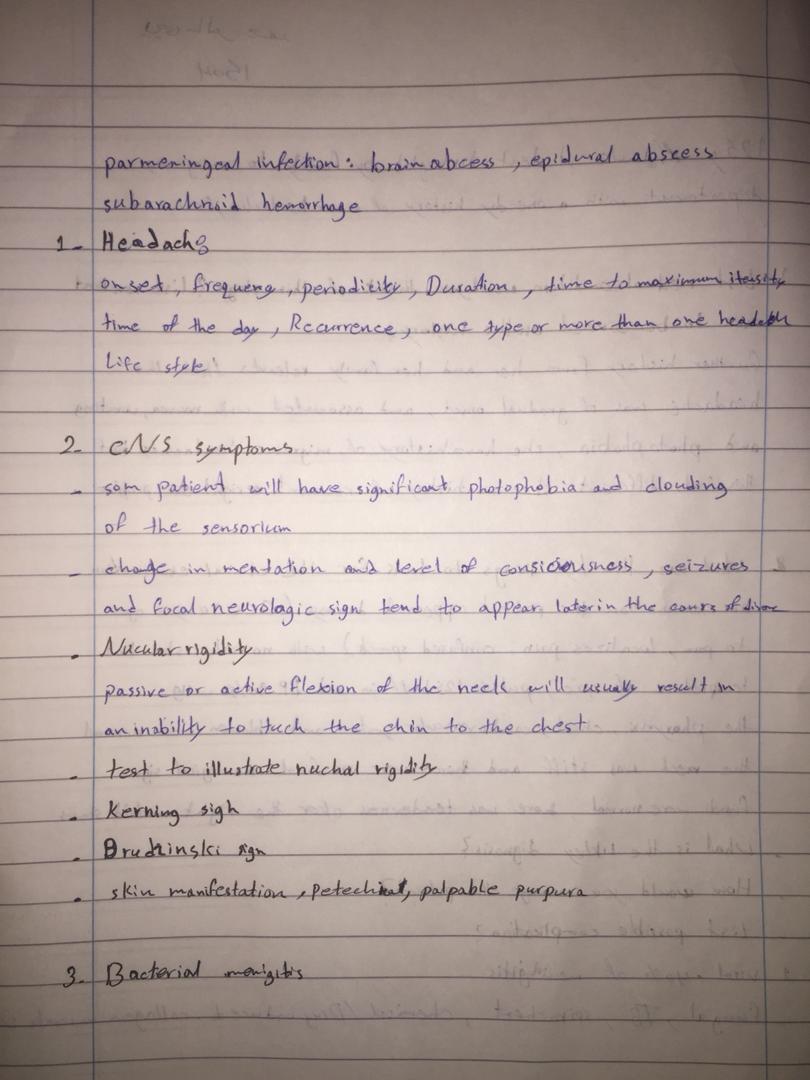 parmeningeal infection: brain abcess, epidural abscess
subarachnoid hemorrhage
1- Headache
onset, frequency, periodicity, Duration, time to maximum itensity
time of the day, Recurrence, one type or more than one headach
Life style
2- CNS symptoms
- som patient will have significant photophobia and clouding
of the sensorium
- change in mentation and level of consiciousness, seizures
and focal neurologic sign tend to appear later in the cours of
. Nucular rigidity
passive or active flexion of the neck will usually result in
an inability to tuch the chin to the chest
. test to illustrate nuchal rigidity
. Kerning sigh
. Brudzinski sign
. skin manifestation, Petechial, palpable purpura
3- Bacterial menigitis